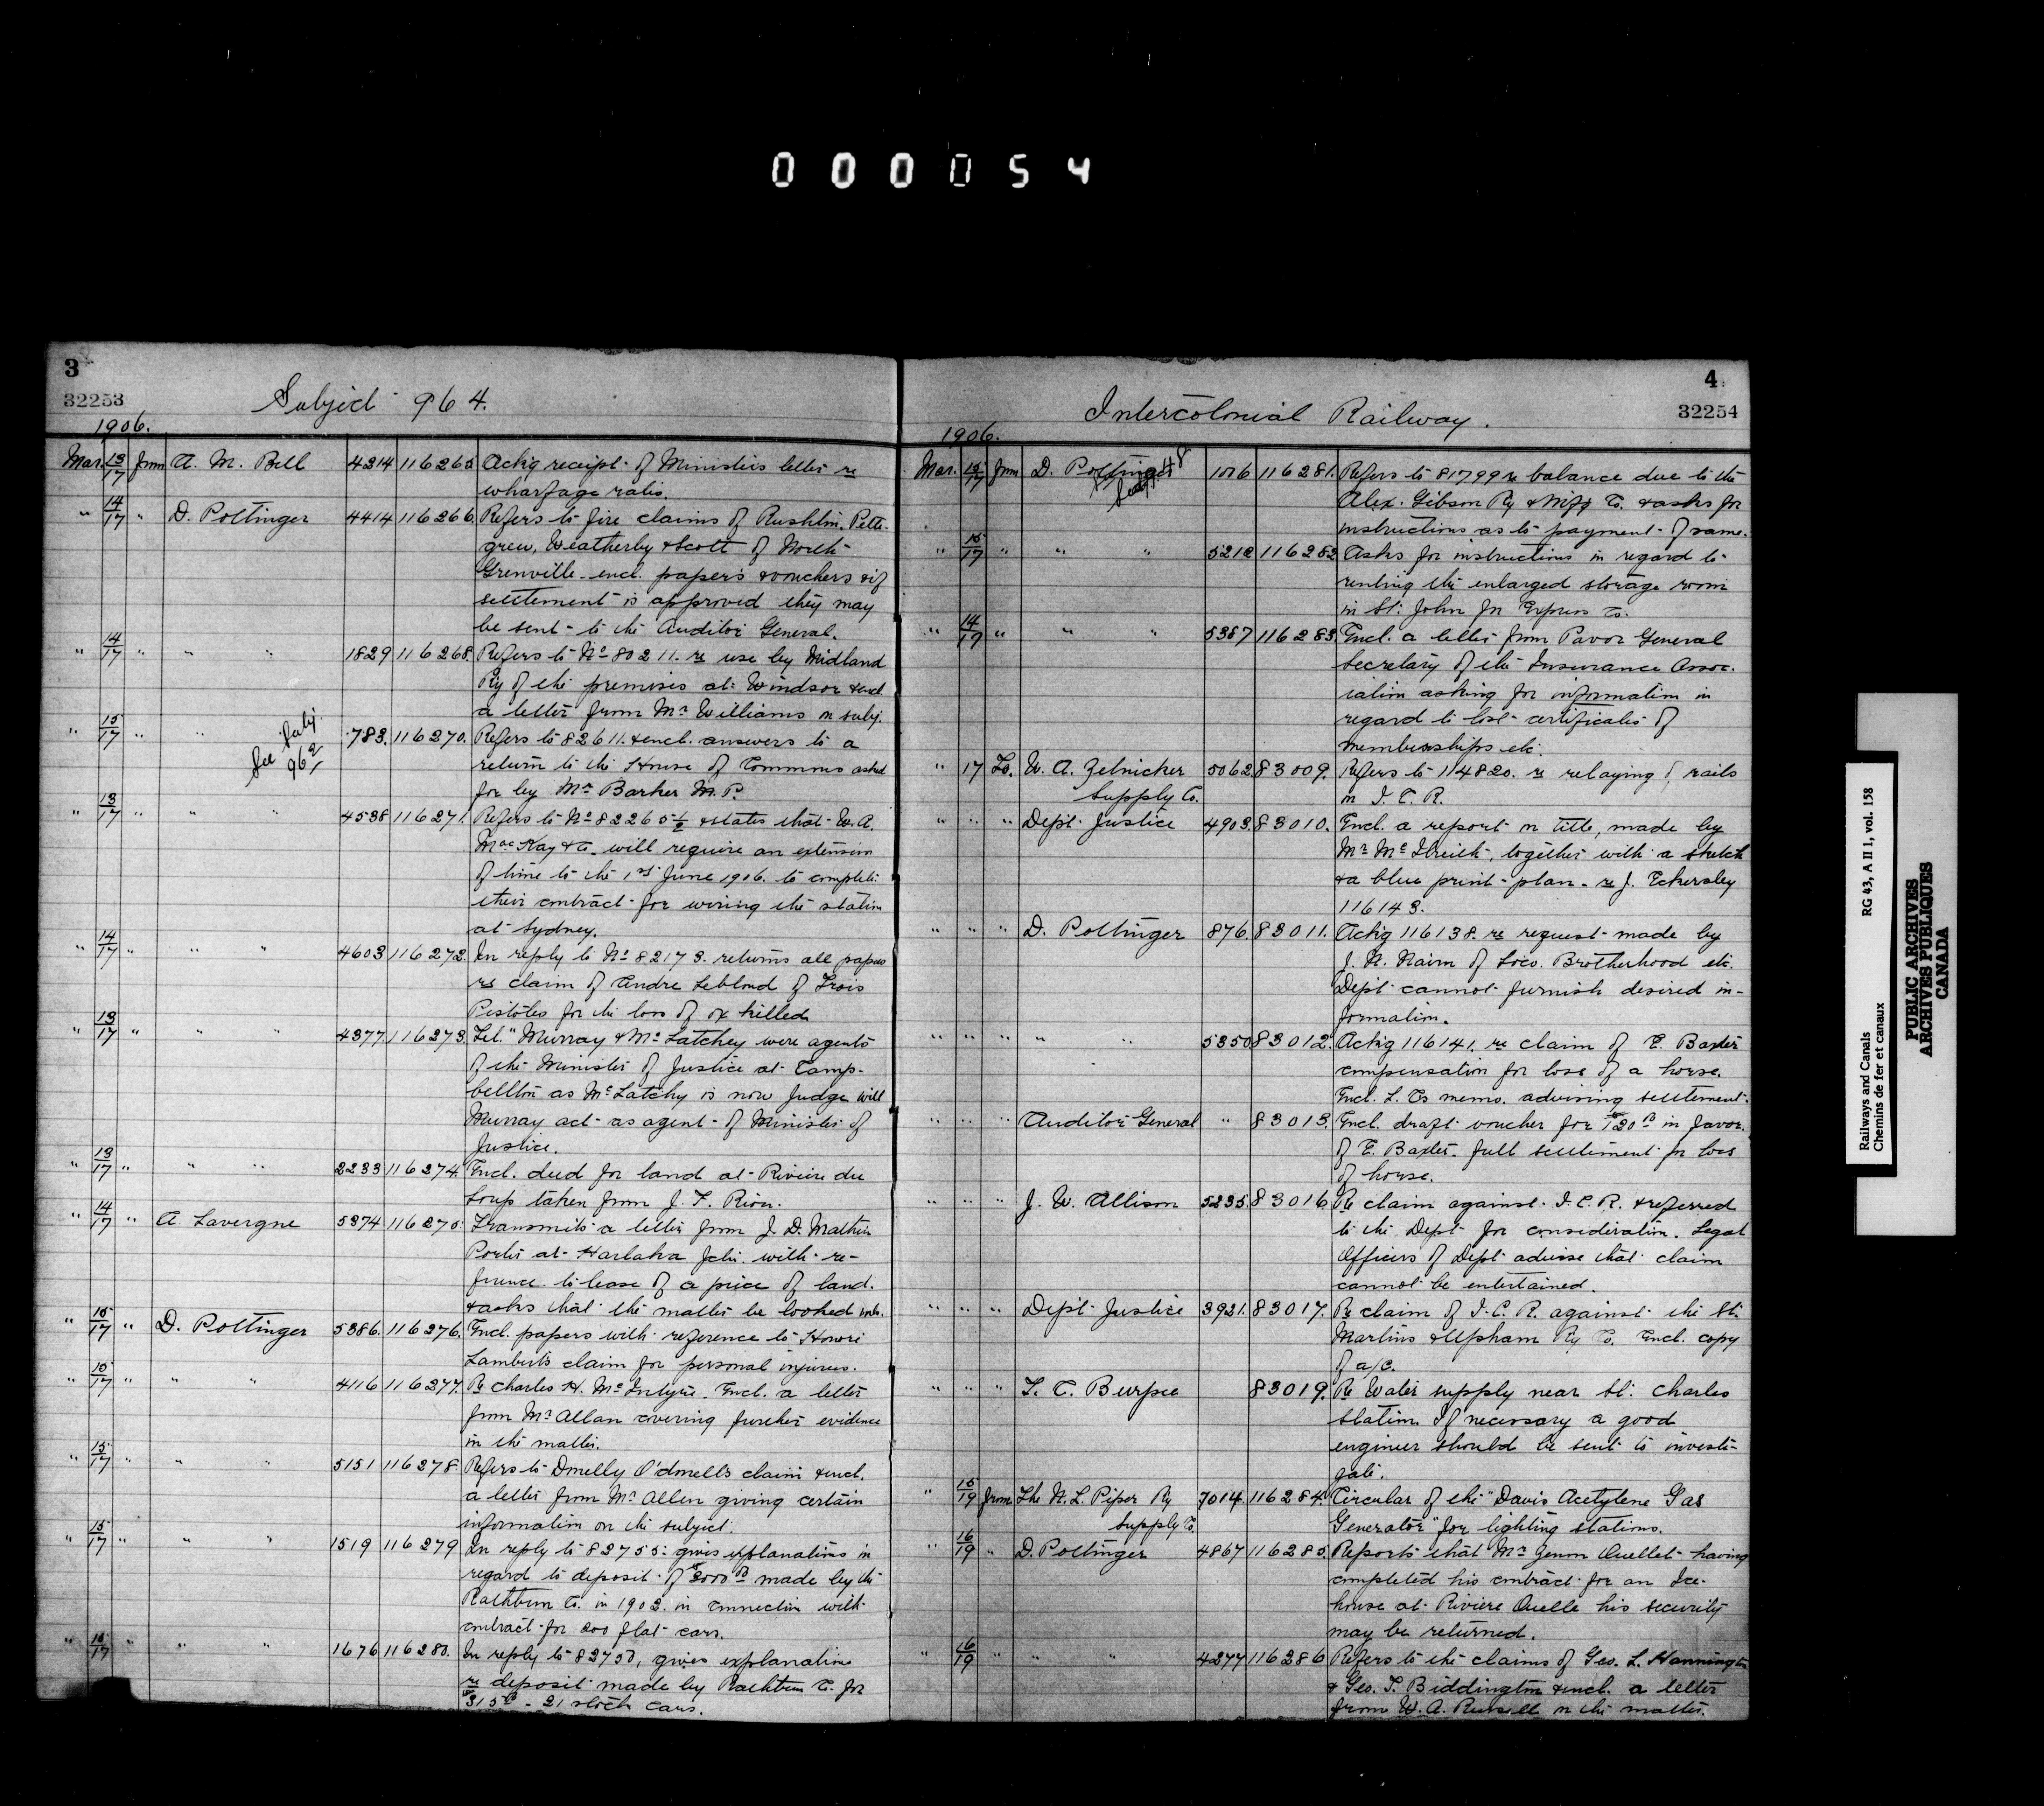 000054
3
32253
Subject 964.
1906.
Mar. 13/17 from A. M. Bell 4214 116265 Ackg receipt of Ministers letter re
wharfage rates.
" 14/17 " D. Pottinger 4414 116266. Refers to fire claims of Rushton, Pette-
grew, Weatherby & Scott of North
Grenville encl. papers & vouchers & if
settlement is approved they may
be sent to the Auditor General.
" 14/17 " " " 1829 116268. Refers to No 80211. re use by Midland
Ry of the premises at Windsor & encl.
a letter from Mr Williams on subj.
" 15/17 " " See Subj. 962 783. 116270. Refers to 82611. & encl. answers to a
return to the House of Commons asked
for by Mr Barker M.P.
" 13/17 " " " 4538 116271. Refers to No 82265 1/2 & states that W. A.
MacKay & Co. will require an extension
of time to the 1st June 1906. to complete
their contract for wiring the station
at Sydney.
" 14/17 " " " 4603 116272. In reply to No 82173. returns all papers
re claim of Andre Leblond of Trois
Pistoles for the loss of ox killed
" 13/17 " " " 4377. 116273. Tel. "Murray & McLatchey were agents
of the Minister of Justice at Camp-
bellton as McLatchy is now Judge will
Murray act as agent of Minister of
Justice.
" 13/17 " " " 2233 116274. Encl. deed for land at Riviere du
Loup taken from J. F. Riou.
" 14/17 " A. Lavergne 5374 116275. Transmits a letter from J. D. Mathieu
Porter at Harlaka Jctn. with re-
ference to lease of a price of land.
& asks that the matter be looked into.
" 15/17 " D. Pottinger 5386. 116276. Encl. papers with reference to Henri
Lamberts claim for personal injuries.
" 15/17 " " " 4116 116277. Re Charles H. McIntyre. Encl. a letter
from Mr Allan covering further evidence
in the matter.
" 15/17 " " " 5151 116278. Refers to Donnelly O'donnells claim & encl.
a letter from Mr Allen giving certain
information on the subject.
" 15/17 " " " 1519 116279 In reply to 82755: gives explanations in
regard to deposit of $2000 00 made by the
Rathbun Co. in 1903. in connection with
contract for 200 flat cars.
" 15/17 " " 1676 116280. In reply to 82750, gives explanation
re deposit made by Rathbun Co. for
$315 00 - 21 stock cars.
4
32254
Intercolonial Railway.
1906.
Mar. 15/17 from D. Pottinger 1016 116281. Refers to 81799 re balance due to the
Alex. Gibson Ry & Mfg Co. & asks for
instructions as to payment of same.
" 15/17 " " " 5212 116282 Asks for instructions in regard to
renting the enlarged storage room
in St. John for Express Co.
" 14/19 " " " 5387 116283. Encl. a letter from Pavor General
Secretary of the Insurance Assoc-
iation asking for information in
regard to lost certificates of
memberships etc.
" 17 To. W. A. Zelnicker 5062 83009. Refers to 114820. re relaying of rails
Supply Co. on I. C. R.
" " " Dept. Justice 4903. 83010. Encl. a report on title, made by
Mr McIlreith, together with a sketch
& a blue print plan. re J. Eckersley
116143.
" " " D. Pottinger 876. 83011. Ackg 116138. re request made by
J. N. Nairn of Loco. Brotherhood etc.
Dept. cannot furnish desired in-
formation.
" " " " " 5350 83012. Ackg 116141. re claim of E. Baxter
compensation for loss of a horse.
Encl. L. Cs memo. advising settlement.
" " " Auditor General " 83013. Encl. draft voucher for $120 00 in favor
of E. Baxter. full settlement for loss
of horse.
" " " J. W. Allison 5235. 83016 Re claim against I. C. R. & referred
to the Dept. for consideration. Legal
Officers of Dept. advise that claim
cannot be entertained.
" " " Dept. Justice 3921. 83017. Re claim of I. C. R. against the St.
Martins & Upham Ry Co. Encl. copy
of a/c.
" " " T. C. Burpee 83019. Re Water supply near St. Charles
Station. If necessary a good
engineer should be sent to investi-
gate.
" 15/19 from The N. L. Piper Ry 7014. 116284. Circular of the "Davis Acetylene Gas
Supply Co. Generator" for lighting stations.
" 16/19 " D. Pottinger 4867 116285. Reports that Mr Zenon Ouellet having
completed his contract for an Ice-
house at Riviere Ouelle his security
may be returned.
" 16/19 " " 4277 116286 Refers to the claims of Geo. L. Hannington
& Geo. T. Biddington & encl. a letter
from W. A. Russell on the matter.
Railways and Canals
Chemins de fer et canaux
RG 43, A II 1, vol. 158
PUBLIC ARCHIVES
ARCHIVES PUBLIQUES
CANADA